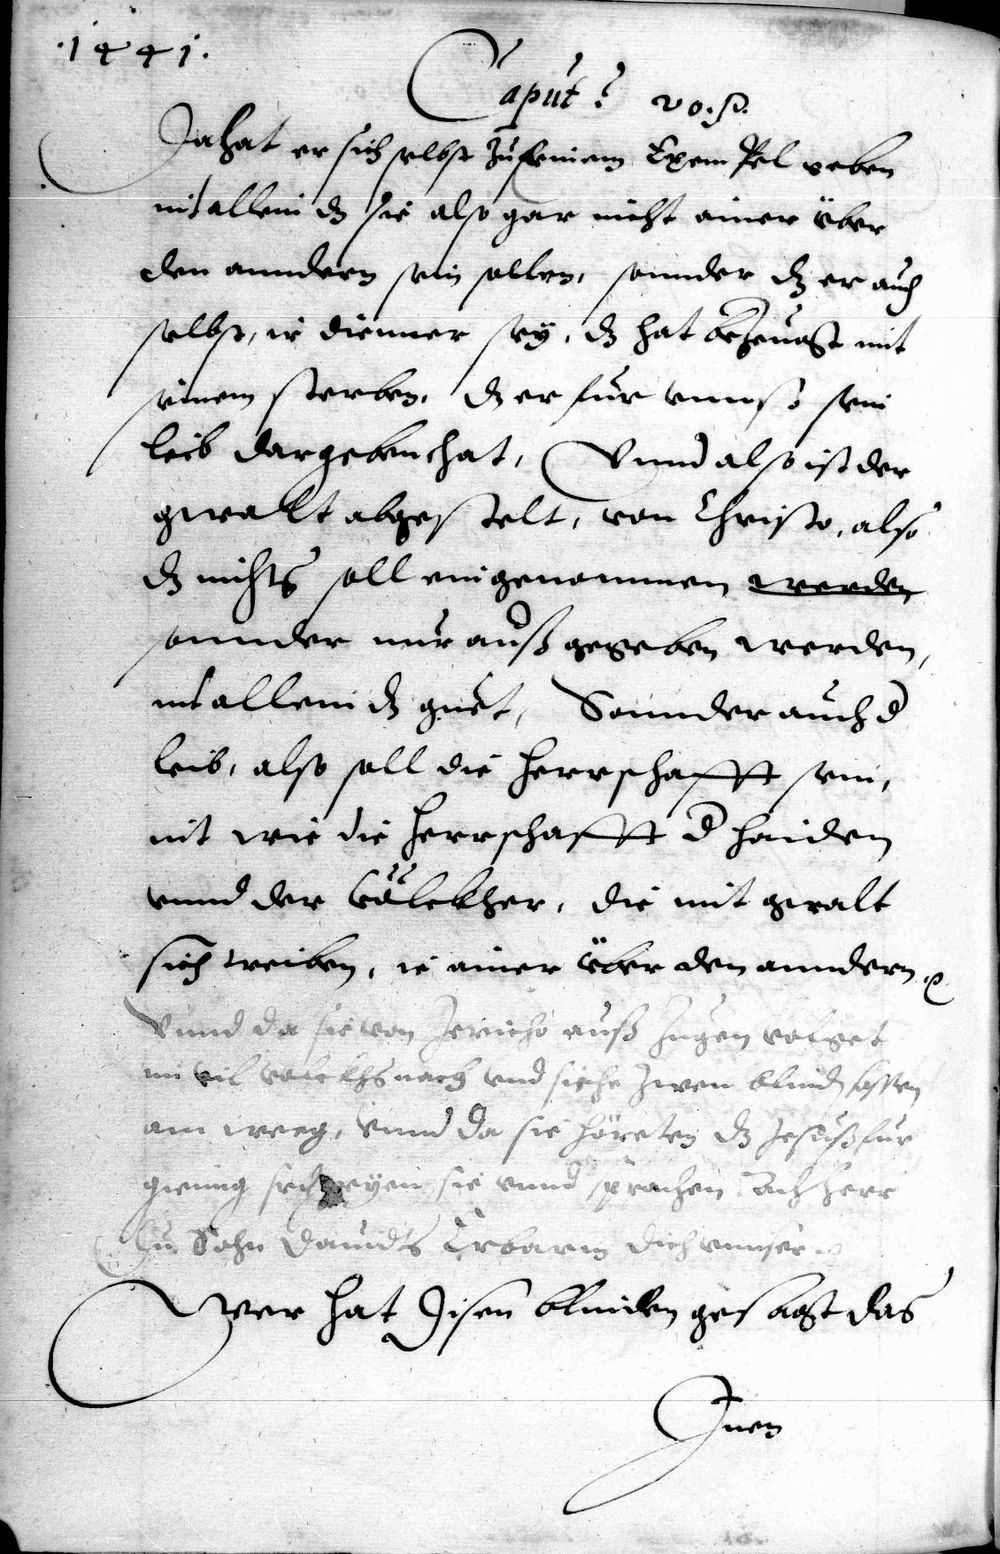 .1441.
Caput: 20.
Da hat er sich selbst zu seinem Exempel geben
nit allein dz sie also gar nicht ainer über
den anndern sein sollen, sonnder dz er auch
selbst, ir dienner sey, dz hat bezeugt mit
seinem sterben, dz er fur vnnß sein
leib dargeben hat, Vnnd also ist der
gwallt abgestelt, von Christo, also
dz nichts soll eingenommen werden
sonnder nur auß gegeben werden,
nit allein dz guet, Sonnder auch d
leib, also soll die herrschafft sein,
nit wie die herrschafft d haiden
vnnd der völckher, die mit gwalt
sich treiben, ie ainer über den anndern.
Vnnd da sie von Jericho auß zugen volget
im vil volckhs nach vnd siehe zwen blinden sassen
am weeg, Vnnd da sie höreten dz Jesuß fur
gieng schreyen sie vnnd sprachen Ach herr
du Sohn Dauids Erbarm dich vnnser
Wer hat disen blinden gesagt das
Inen